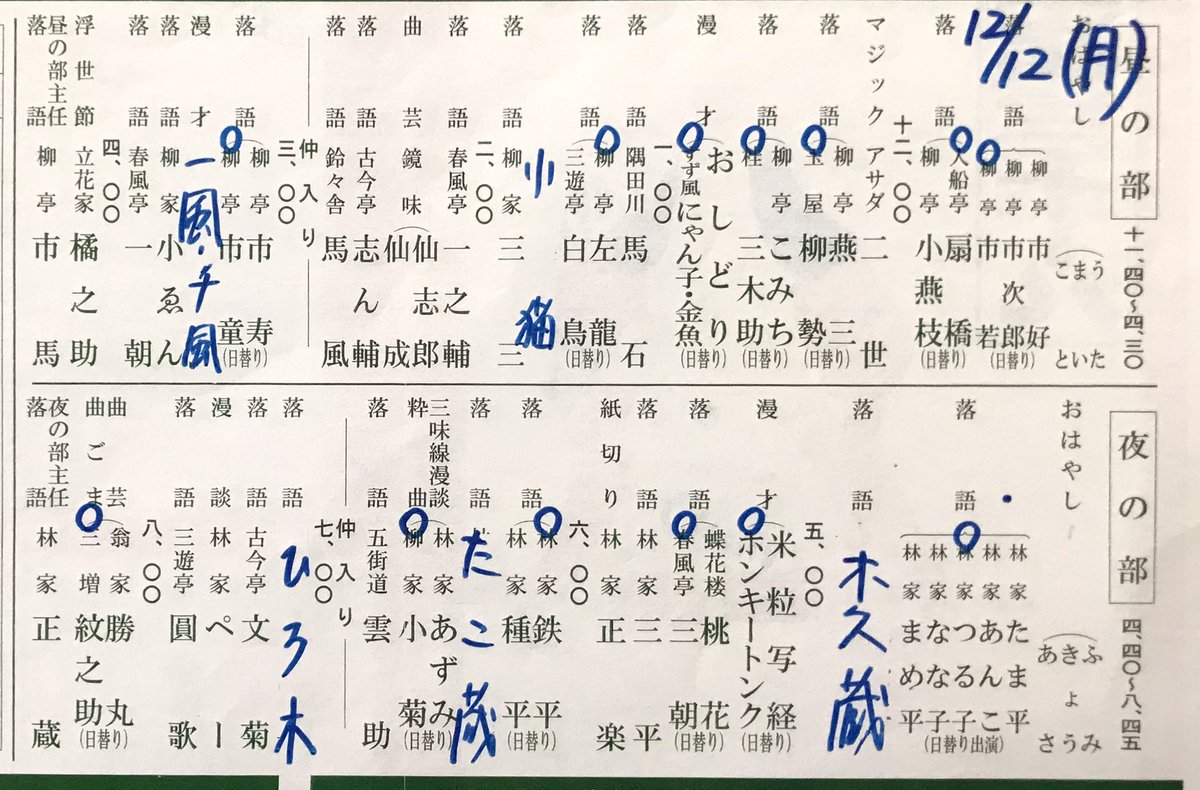 12/12(月)
昼の部 十一、四〇〜四、三〇
おはやし
こまう
といた
落語
柳亭市好
柳亭市次郎
柳亭市若
(日替り)
落語
入船亭扇橋
柳亭小燕枝
(日替り)
十二、〇〇
マジック アサダ二世
落語
柳亭燕三
玉屋柳勢
(日替り)
落語
柳亭こみち
桂三木助
(日替り)
漫才
おしどり
すず風にゃん子・金魚
(日替り)
一、〇〇
落語 隅田川馬石
落語
柳亭左龍
三遊亭白鳥
(日替り)
小猫
落語 柳家三三
二、〇〇
落語 春風亭一之輔
曲芸 鏡味
仙志郎
仙成
落語 古今亭志ん輔
落語 鈴々舎馬風
仲入り
三、〇〇
落語
柳亭市寿
柳亭市童
(日替り)
漫才 一風・千風
落語 柳家小ゑん
落語 春風亭一朝
四、〇〇
浮世節 立花家橘之助
昼の部主任
落語 柳亭市馬
夜の部 四、四〇〜八、四五
おはやし
あきふ
ょ
さうみ
落語
林家たま平
林家あんこ
林家つる子
林家なな子
林家まめ平
(日替り出演)
落語 木久蔵
五、〇〇
漫才
米粒写経
ホンキートンク
(日替り)
落語
蝶花楼桃花
春風亭三朝
(日替り)
落語 林家三平
紙切り 林家正楽
六、〇〇
落語
林家鉄平
林家種平
(日替り)
落語 たこ蔵
三味線漫談 林家あずみ
粋曲 柳家小菊
(日替り)
落語 五街道雲助
仲入り
七、〇〇
落語 ひろ木
落語 古今亭文菊
漫談 林家ペー
落語 三遊亭圓歌
八、〇〇
曲芸 翁家勝丸
曲ごま 三増紋之助
(日替り)
夜の部主任
落語 林家正蔵